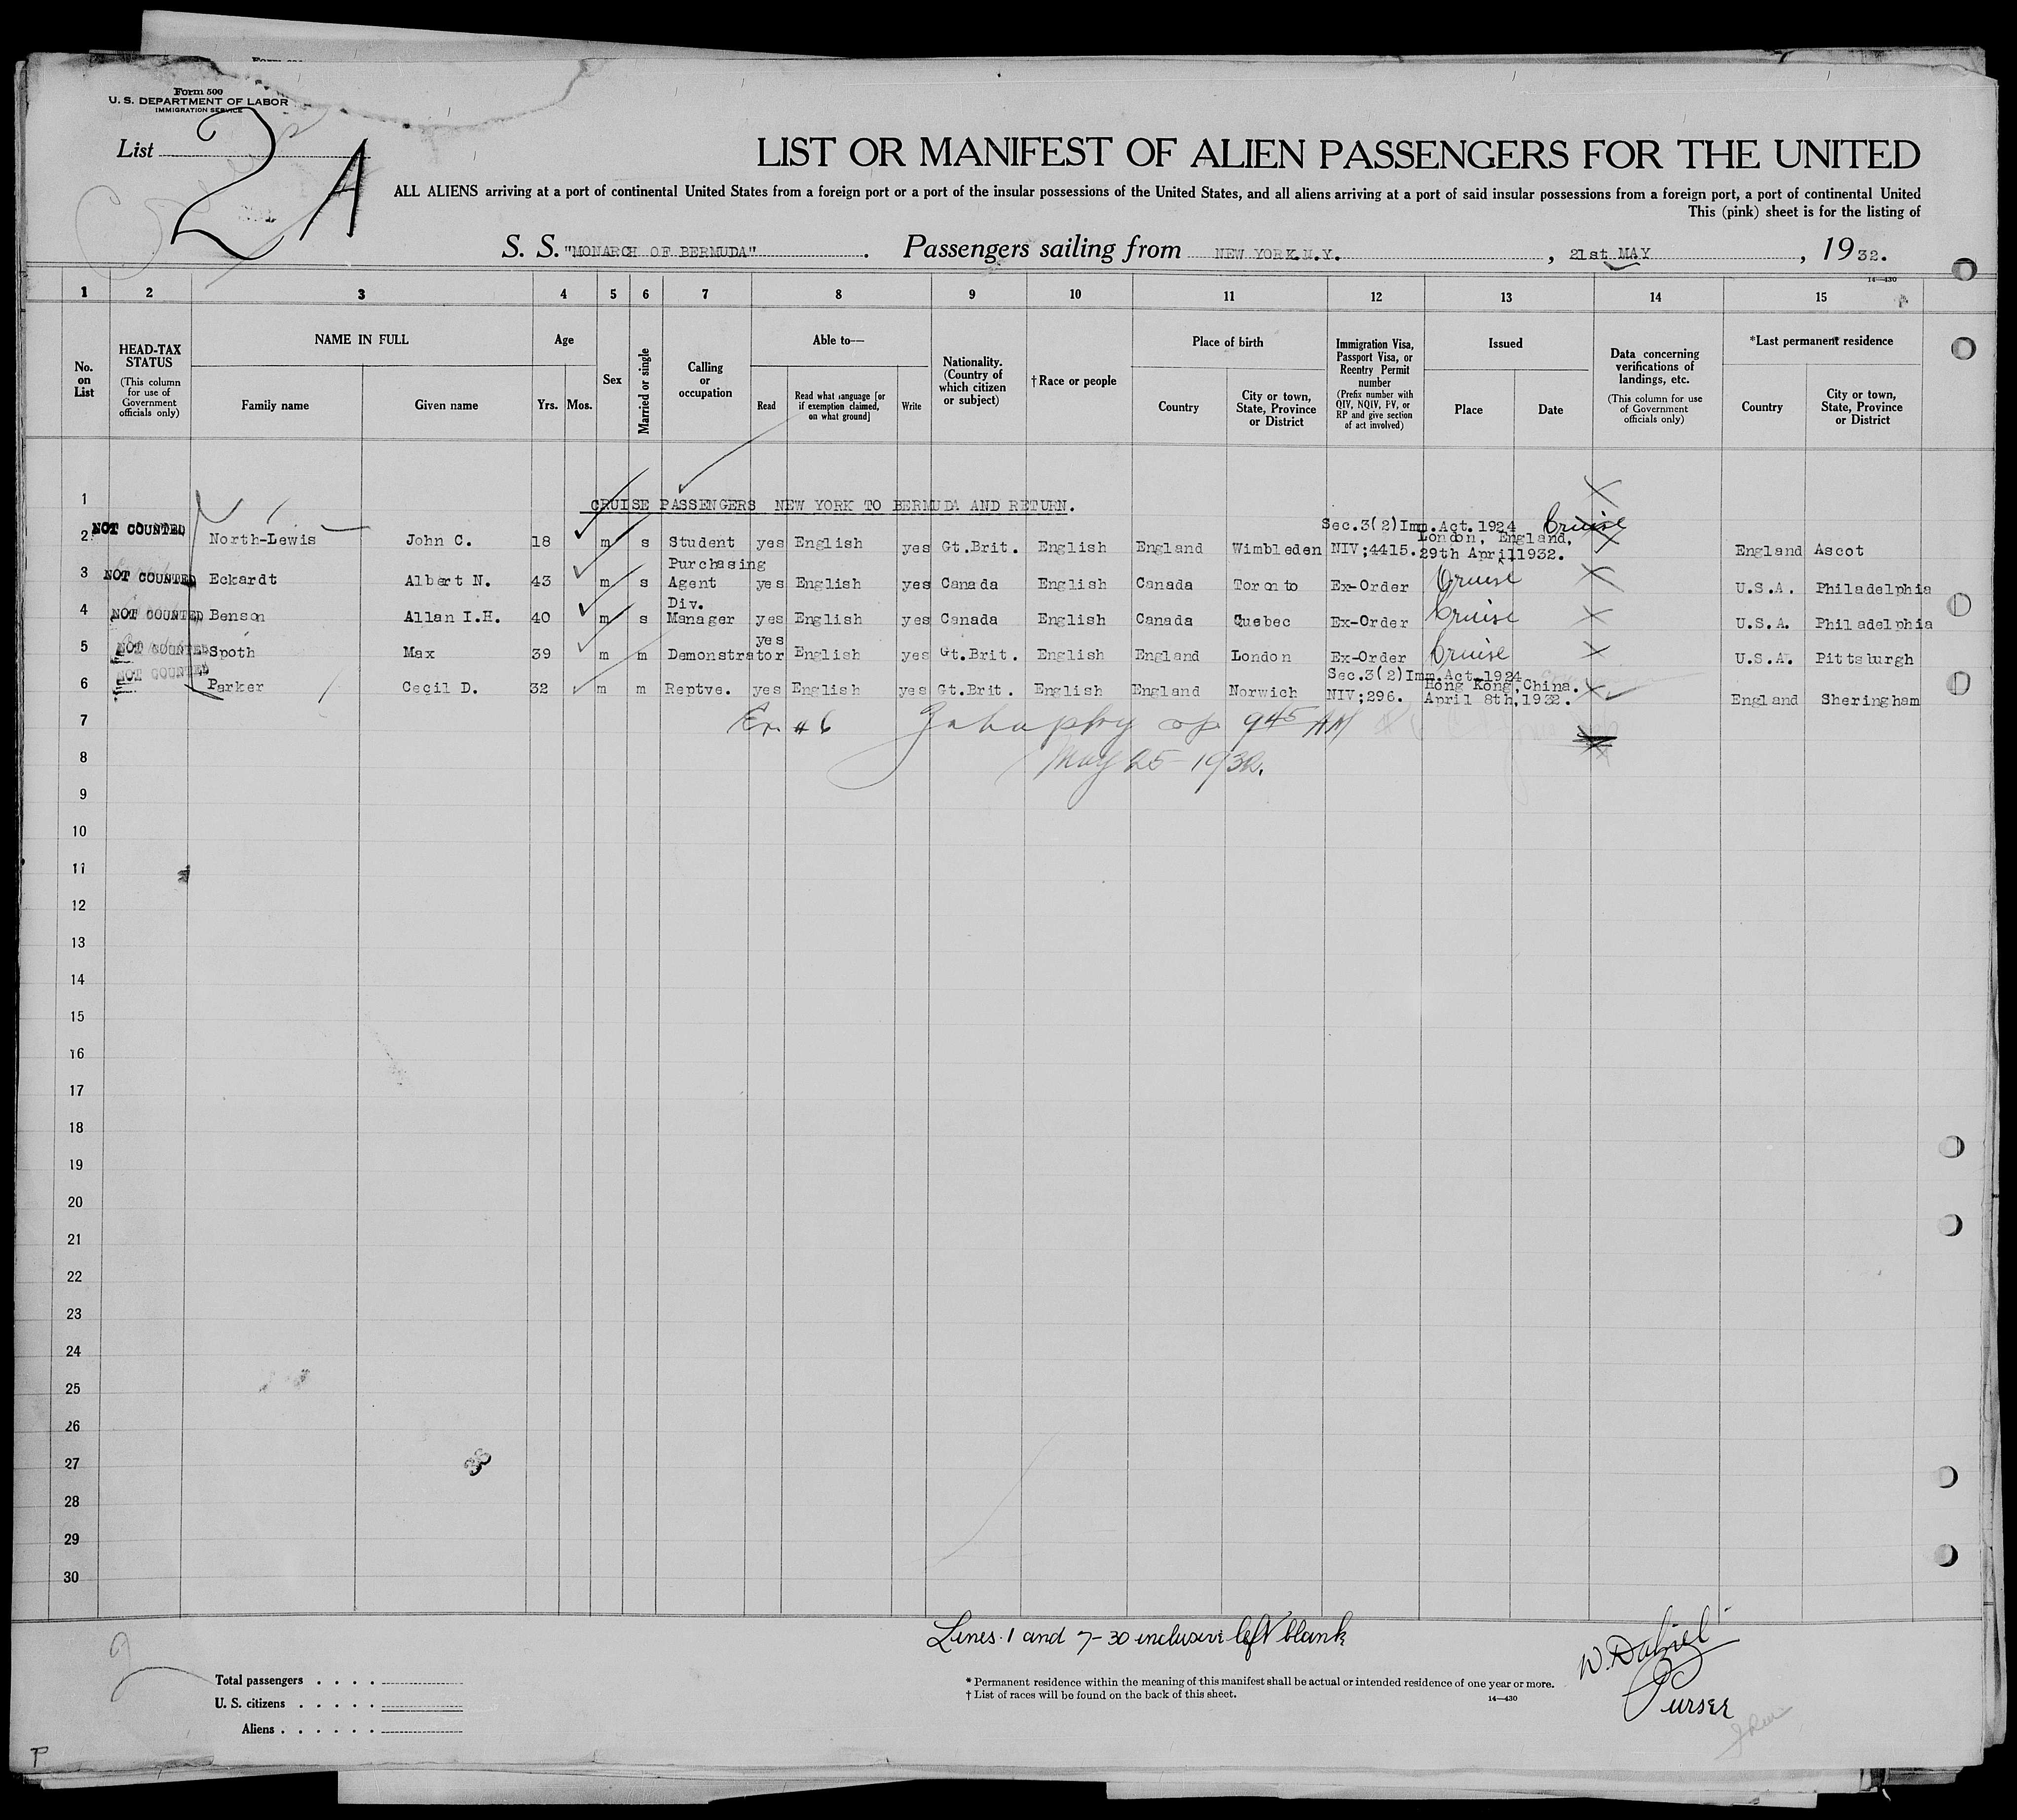 Form 500
U. S. DEPARTMENT OF LABOR
IMMIGRATION SERVICE
List 2 A
LIST OR MANIFEST OF ALIEN PASSENGERS FOR THE UNITED
ALL ALIENS arriving at a port of continental United States from a foreign port or a port of the insular possessions of the United States, and all aliens arriving at a port of said insular possessions from a foreign port, a port of continental United
This (pink) sheet is for the listing of
S. S. "MONARCH OF BERMUDA". Passengers sailing from NEW YORK.N.Y., 21st MAY, 1932.
14—430
1 2 3 4 5 6 7 8 9 10 11 12 13 14 15
No. on List
HEAD-TAX STATUS (This column for use of Government officials only)
NAME IN FULL
Family name
Given name
Age
Yrs. Mos.
Sex
Married or single
Calling or occupation
Able to—
Read
Read what language [or if exemption claimed, on what ground]
Write
Nationality. (Country of which citizen or subject)
†Race or people
Place of birth
Country
City or town, State, Province or District
Immigration Visa, Passport Visa, or Reentry Permit number (Prefix number with QIV, NQIV, PV, or RP and give section of act involved)
Issued
Place
Date
Data concerning verifications of landings, etc. (This column for use of Government officials only)
*Last permanent residence
Country
City or town, State, Province or District
1 CRUISE PASSENGERS NEW YORK TO BERMUDA AND RETURN.
2 NOT COUNTED North-Lewis John C. 18 m s Student yes English yes Gt.Brit. English England Wimbleden Sec.3(2)Imm.Act.1924 NIV;4415. London, England, 29th April1932. Cruise England Ascot
3 NOT COUNTED Eckardt Albert N. 43 m s Purchasing Agent yes English yes Canada English Canada Toronto Ex-Order Cruise U.S.A. Philadelphia
4 NOT COUNTED Benson Allan I.H. 40 m s Div. Manager yes English yes Canada English Canada Quebec Ex-Order Cruise U.S.A. Philadelphia
5 NOT COUNTED Spoth Max 39 m m Demonstrator yes English yes Gt.Brit. English England London Ex-Order Cruise U.S.A. Pittsburgh
6 NOT COUNTED Parker Cecil D. 32 m m Reptve. yes English yes Gt.Brit. English England Norwich Sec.3(2)Imm.Act.1924 NIV;296. Hong Kong,China. April 8th,1932. England Sheringham
7 #6 945 AM
8 May 25-1932.
9
10
11
12
13
14
15
16
17
18
19
20
21
22
23
24
25
26
27
28
29
30
Lines 1 and 7-30 inclusive left blank
Total passengers
U. S. citizens
Aliens
* Permanent residence within the meaning of this manifest shall be actual or intended residence of one year or more.
† List of races will be found on the back of this sheet.
14—430
Purser
P